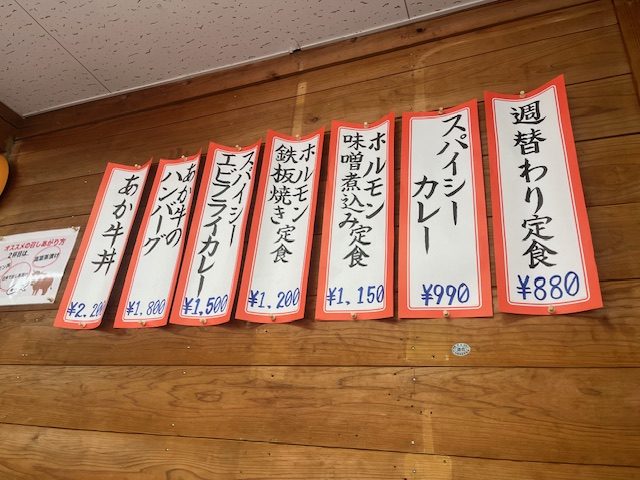 週替わり定食
¥880
スパイシー
カレー
¥990
ホルモン
味噌煮込み定食
¥1,150
ホルモン
鉄板焼き定食
¥1,200
スパイシー
エビフライカレー
¥1,500
あか牛の
ハンバーグ
¥1,800
あか牛丼
¥2,200
オススメの召しあがり方
2杯目は、